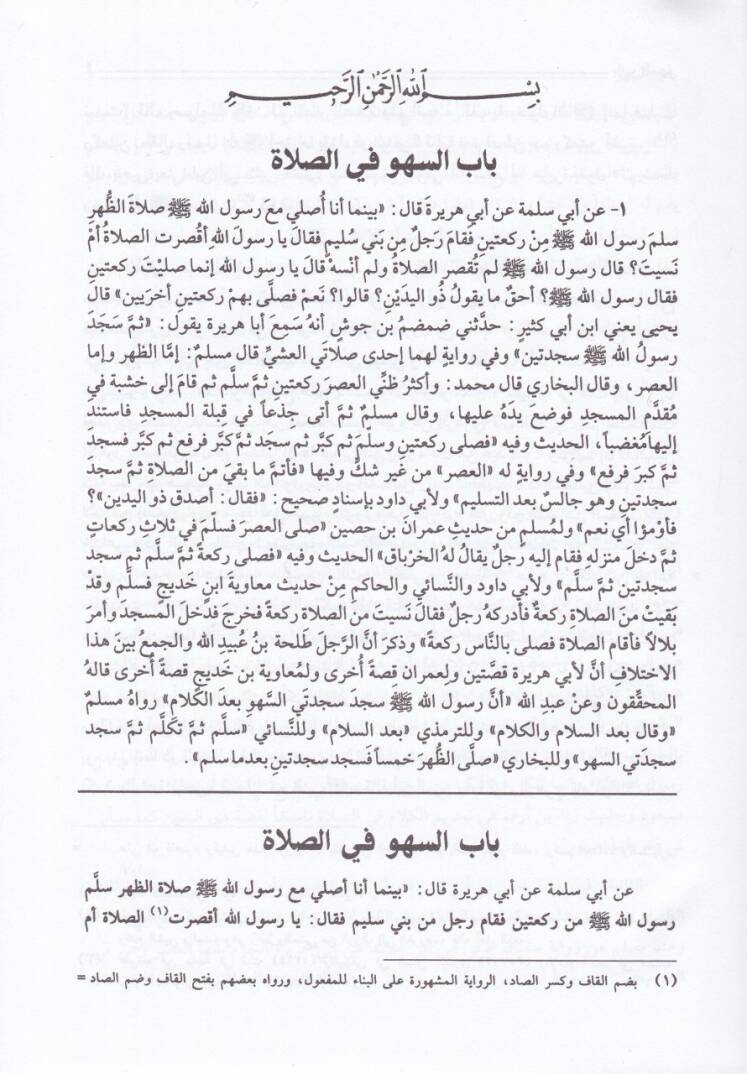 بسم الله الرحمن الرحيم
باب السهو في الصلاة
١- عن أبي سلمة عن أبي هريرةَ قال: «بينما أنا أُصلي مع رسول الله ﷺ صلاةَ الظُهرِ
سلمَ رسول الله ﷺ مِنْ ركعتينِ فقامَ رَجلٌ مِن بَني سُليمٍ فقالَ يا رسولَ اللهِ أقُصرت الصلاةُ أمْ
نَسيتَ؟ قال رسول الله ﷺ لم تُقصر الصلاةُ ولم أنْسهْ قالَ يا رسول الله إنما صليْتَ ركعتينِ
فقال رسول الله ﷺ؟ أحقٌ ما يقولُ ذُو اليدَيْنِ؟ قالوا؟ نَعمْ فصلَّى بهمْ ركعتينِ أخرَيينِ» قال
يحيى يعني ابن أبي كثيرٍ: حدَّثني ضمضمُ بن جوشٍ أنهُ سَمِعَ أبا هريرة يقول: «ثمَّ سَجَدَ
رسولُ اللهِ ﷺ سجدتين» وفي روايةٍ لهما إحدى صلاتَي العشيِّ قال مسلمٌ: إمَّا الظهر وإما
العصر، وقال البخاري قال محمد: وأكثرُ ظنِّي العصرَ ركعتينِ ثمَّ سلَّم ثم قامَ إلى خشبة في
مُقدَّمِ المسجدِ فوضعَ يدَهُ عليها، وقال مسلمٌ ثمَّ أتى جذعاً في قبلة المسجدِ فاستندَ
إليها مُغضباً، الحديث وفيه «فصلى ركعتين وسلمَ ثم كبَّر ثم سجَد ثمَّ كبَّر فرفع ثم كبَّر فسجدَ
ثمَّ كبرَ فرفع» وفي روايةٍ له «العصر» من غَير شكٍّ وفيها «فأتمَّ ما بقيَ من الصلاة ثمَّ سجدَ
سجدتينِ وهو جالسٌ بعد التسليم» ولأبي داود بإسناد صحيح: «فقال: أصدق ذو اليدين»؟
فأوْمؤا أي نعم» ولمُسلم من حديثِ عمرانَ بن حصين «صلى العصرَ فسلمَ في ثلاثِ ركعاتٍ
ثمَّ دخلَ منزلهِ فقام إليه رجلٌ يقالُ لهُ الخرْباقُ» الحديث وفيه «فصلى ركعةً ثمَّ سلَّم ثم سجد
سجدتينِ ثمَّ سلَّم» ولأبي داود والنَّسائي والحاكمِ مِنْ حديث معاوية ابنِ خديجٍ فسلَّم وقدْ
بَقيتْ من الصلاةِ ركعةٌ فأدركهُ رجلٌ فقالَ نَسيتَ من الصلاة ركعةً فخرج فدخلَ المسجدَ وأمرَ
بلالاً فأقام الصلاة فصلى بالنَّاس ركعةً» وذكرَ أنَّ الرَّجلَ طلحة بنُ عُبيدِ الله والجمعُ بينَ هذا
الاختلافِ أنَّ لأبي هريرة قصَّتينِ ولِعمران قِصةً أُخرى ولمُعاوية بن خَديجٍ قصةً أُخرى قالهُ
المحقِّقون وعنْ عبدِ الله «أنَّ رسول الله ﷺ سجدَ سجدتَي السَّهوِ بعدَ الكلامِ» رواهُ مسلمٌ
«وقال بعد السلام والكلام» وللترمذي «بعد السلام» وللنَّسائي «سلَّم ثمَّ تكلَّم ثمَّ سجد
سجدتي السهو» وللبخاري «صلَّى الظُهرَ خمساً فسجدَ سجدتينِ بعدما سلم».
باب السهو في الصلاة
عن أبي سلمة عن أبي هريرة قال: «بينما أنا أصلي مع رسول الله ﷺ صلاة الظهر سلَّم
رسول الله ﷺ من ركعتين فقام رجل من بني سليم فقال: يا رسول الله أقصرت(١) الصلاة أم
(١) بضم القاف وكسر الصاد، الرواية المشهورة على البناء للمفعول، ورواه بعضهم بفتح القاف وضم الصاد =